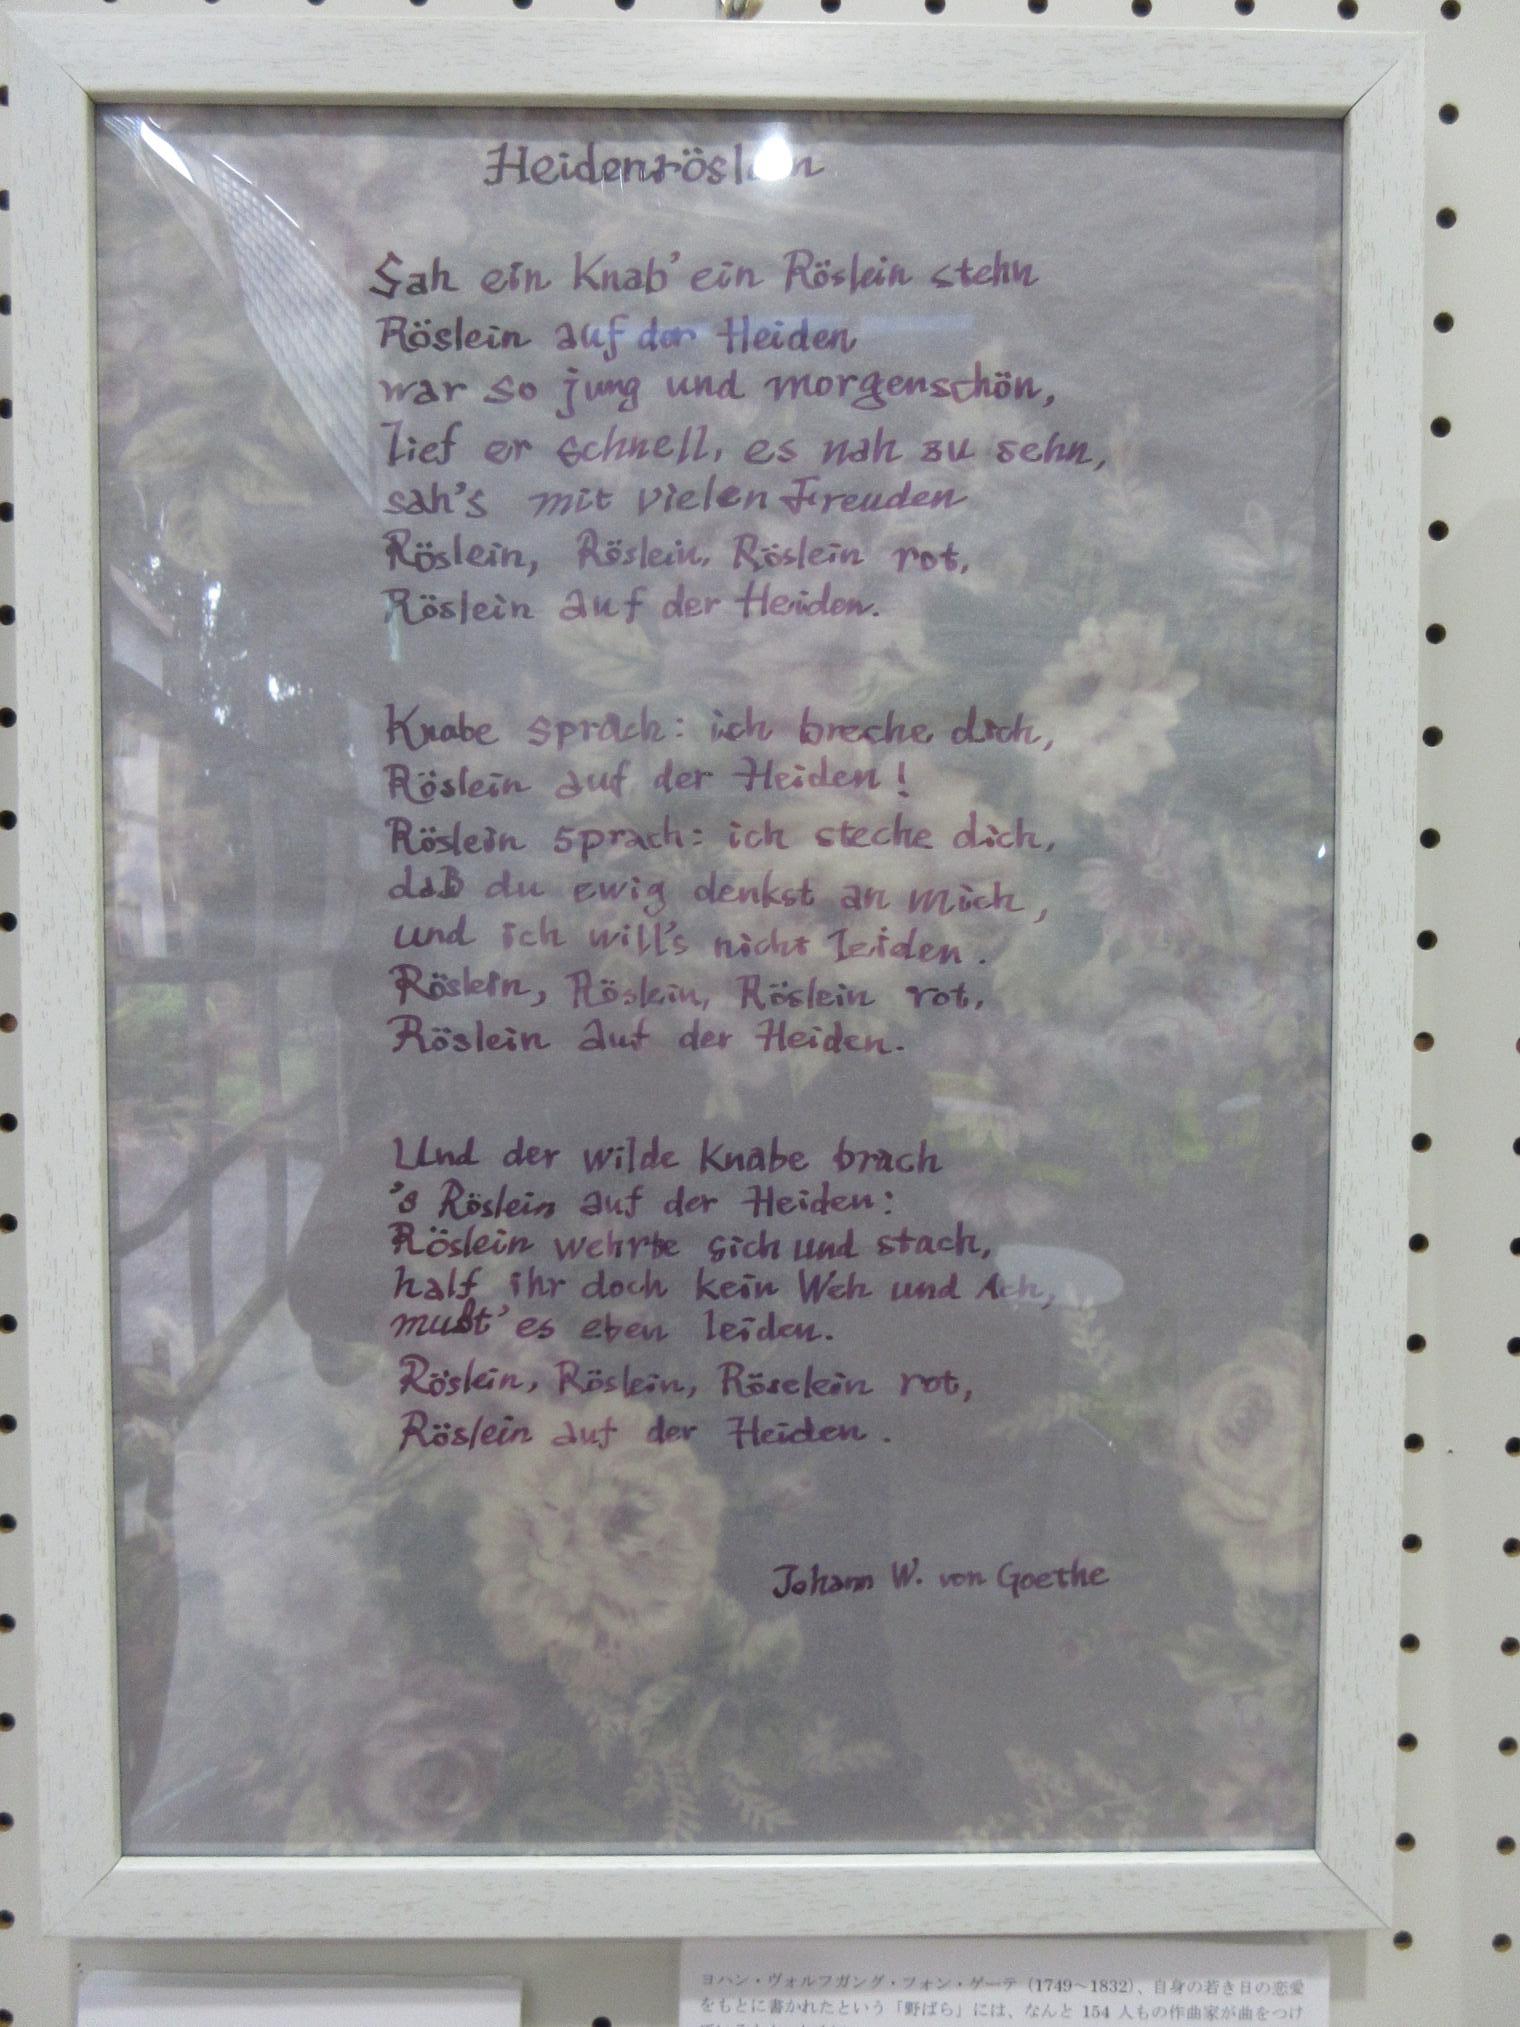 Heidenröslein
Sah ein Knab' ein Röslein stehn
Röslein auf der Heiden
war so jung und morgenschön,
lief er schnell, es nah zu sehn,
sah's mit vielen Freuden
Röslein, Röslein, Röslein rot,
Röslein auf der Heiden.
Knabe sprach: ich breche dich,
Röslein auf der Heiden!
Röslein sprach: ich steche dich,
daß du ewig denkst an mich,
und ich will's nicht leiden.
Röslein, Röslein, Röslein rot,
Röslein auf der Heiden.
Und der wilde Knabe brach
's Röslein auf der Heiden:
Röslein wehrte sich und stach,
half ihr doch kein Weh und Ach,
mußt' es eben leiden.
Röslein, Röslein, Röselein rot,
Röslein auf der Heiden.
Johann W. von Goethe
ヨハン・ヴォルフガング・フォン・ゲーテ (1749～1832)、自身の若き日の恋愛
をもとに書かれたという「野ばら」には、なんと 154 人もの作曲家が曲をつけ